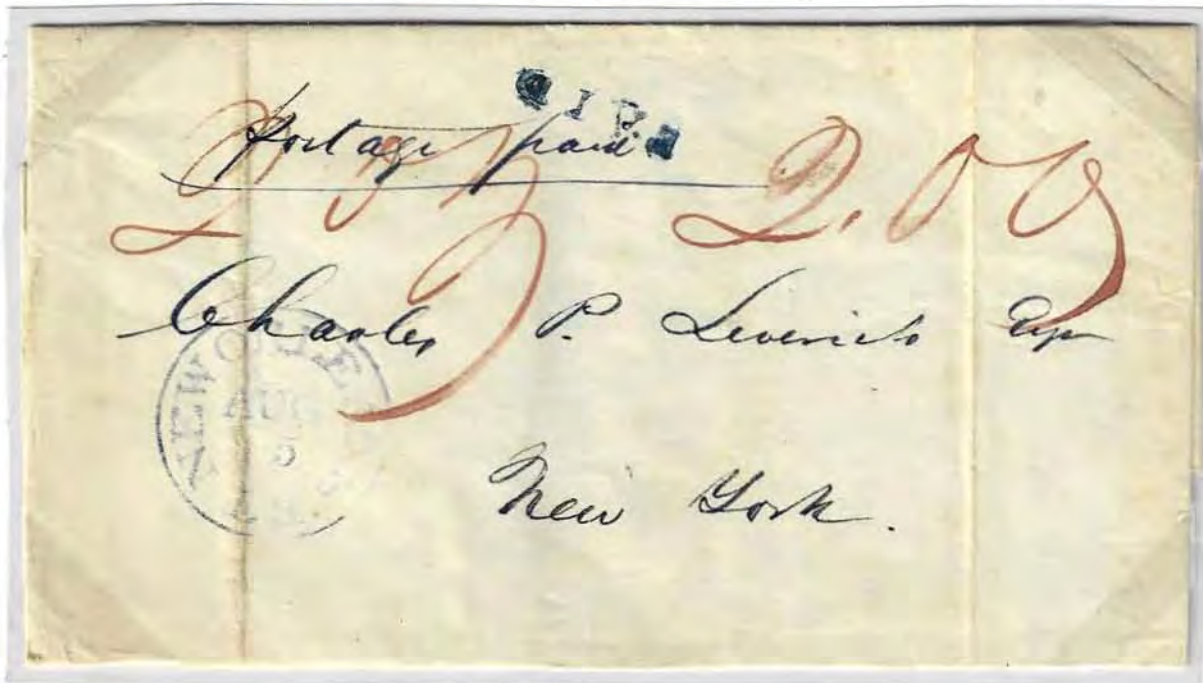 Postage paid
Charles P. Leverich Esqr
New York.
NEW ORLEANS
AUG
5
LA.